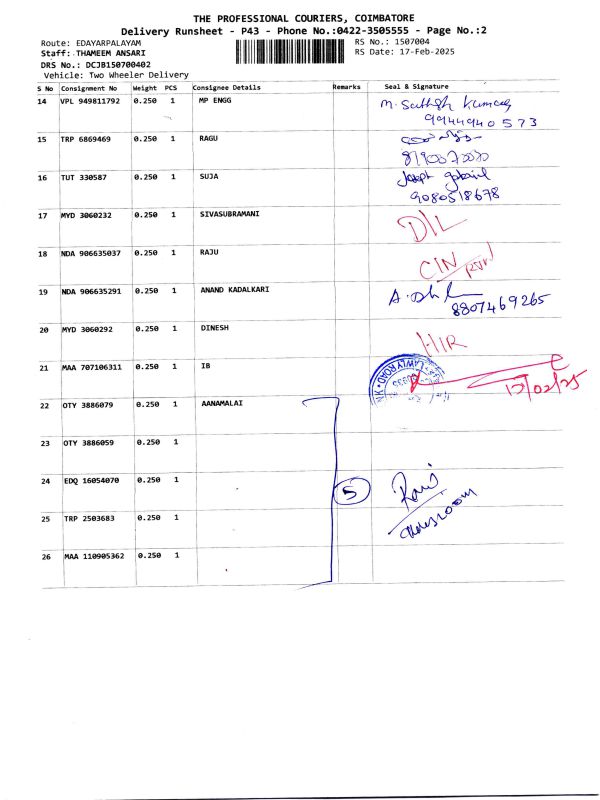 THE PROFESSIONAL COURIERS, COIMBATORE
Delivery Runsheet - P43 - Phone No.:0422-3505555 - Page No.:2
Route: EDAYARPALAYAM
RS No.: 1507004
Staff: THAMEEM ANSARI
RS Date: 17-Feb-2025
DRS No.: DCJB150700402
Vehicle: Two Wheeler Delivery
S No Consignment No Weight PCS Consignee Details Remarks Seal & Signature
14 VPL 949811792 0.250 1 MP ENGG M. Sathish Kumar
9944940573
15 TRP 6869469 0.250 1 RAGU
16 TUT 330587 0.250 1 SUJA Joseph Gabriel
9080518678
17 MYD 3060232 0.250 1 SIVASUBRAMANI D/L
18 NDA 906635037 0.250 1 RAJU CIN
19 NDA 906635291 0.250 1 ANAND KADALKARI
8807469265
20 MYD 3060292 0.250 1 DINESH
21 MAA 707106311 0.250 1 IB LAWLY ROAD
17/02/25
22 OTY 3886079 0.250 1 AANAMALAI
23 OTY 3886059 0.250 1
24 EDQ 16054070 0.250 1 5 Ravi
25 TRP 2503683 0.250 1
26 MAA 110905362 0.250 1